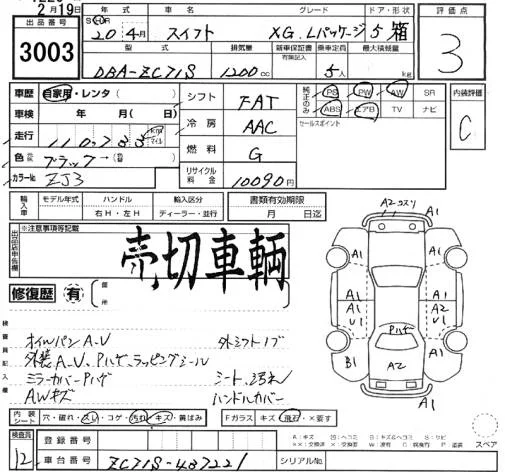 2月19日
出品番号 3003
年式 車名 グレード ドア・形状 評価点
20年4月 スイフト XG.Lパッケージ 5 箱 3
型式 排気量 新車保証書 有無記入 乗車定員 最大積載量
DBA-ZC71S 1200cc 5人 kg
車歴 自家用・レンタ( ) シフト FAT 純正のみ PS PW AW SR 内装評価
車検 年 月( 日) 冷房 AAC ABS エアB TV ナビ C
走行 km マイル セールスポイント
色 ブラック→ 燃料 G
カラーNo. ZJ3 リサイクル料金 10090円
輸入車 モデル年式 ハンドル 輸入区分 書類有効期限
右H・左H ディーラー・並行 月 日迄
出品店申告欄 ※注意事項等記載
売切車輌
修復歴 有 箇所
検査員記入欄
オイルパンA.U 外シフトノブ
外装A.U、Pハゲ、ラッピングシール
ミラーカバーPハゲ シート、コゲ穴
AWキズ ハンドルカバー
A2 カスリ
A1 A1
A1 A1
A1 U1 A2 U1
Pハゲ
B1 A2 A1
A1
内装シート 穴・破れ・スレ・コゲ・汚れ・キズ・黄ばみ Fガラス キズ・飛石・×要す
検査員 12 登録番号
車台番号 ZC71S-487221 シリアルNo.
スペア